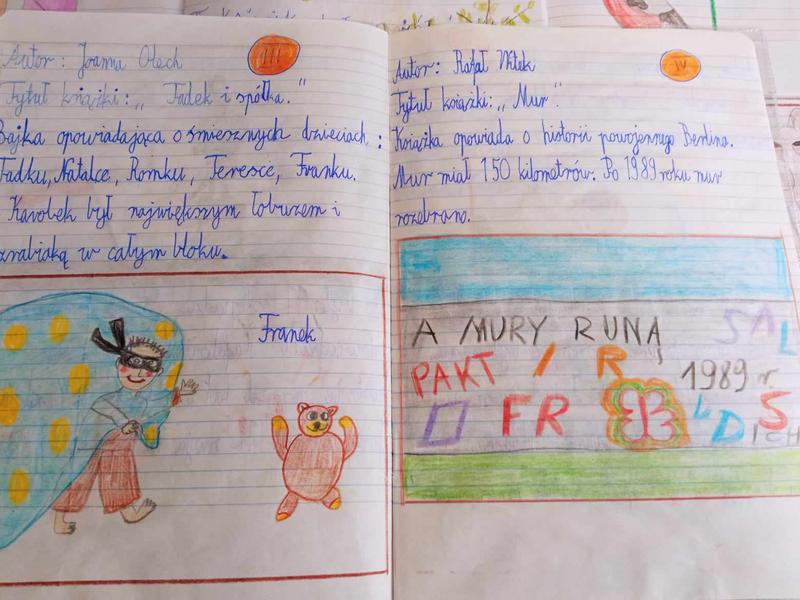 III
Autor: Joanna Olech
Tytuł książki: „Tadek i spółka."
Bajka opowiadająca o śmiesznych dzieciach:
Tadku, Natalce, Romku, Teresce, Franku.
Karolek był największym łobuzem i
zrabiaką w całym bloku.
Franek
IV
Autor: Rafał Witek
Tytuł książki: „Mur".
Książka opowiada o historii powojennego Berlina.
Mur miał 150 kilometrów. Po 1989 roku mur
rozebrano.
A MURY RUNĄ
SAL
PAKT / R
1989 r.
FR
LD S